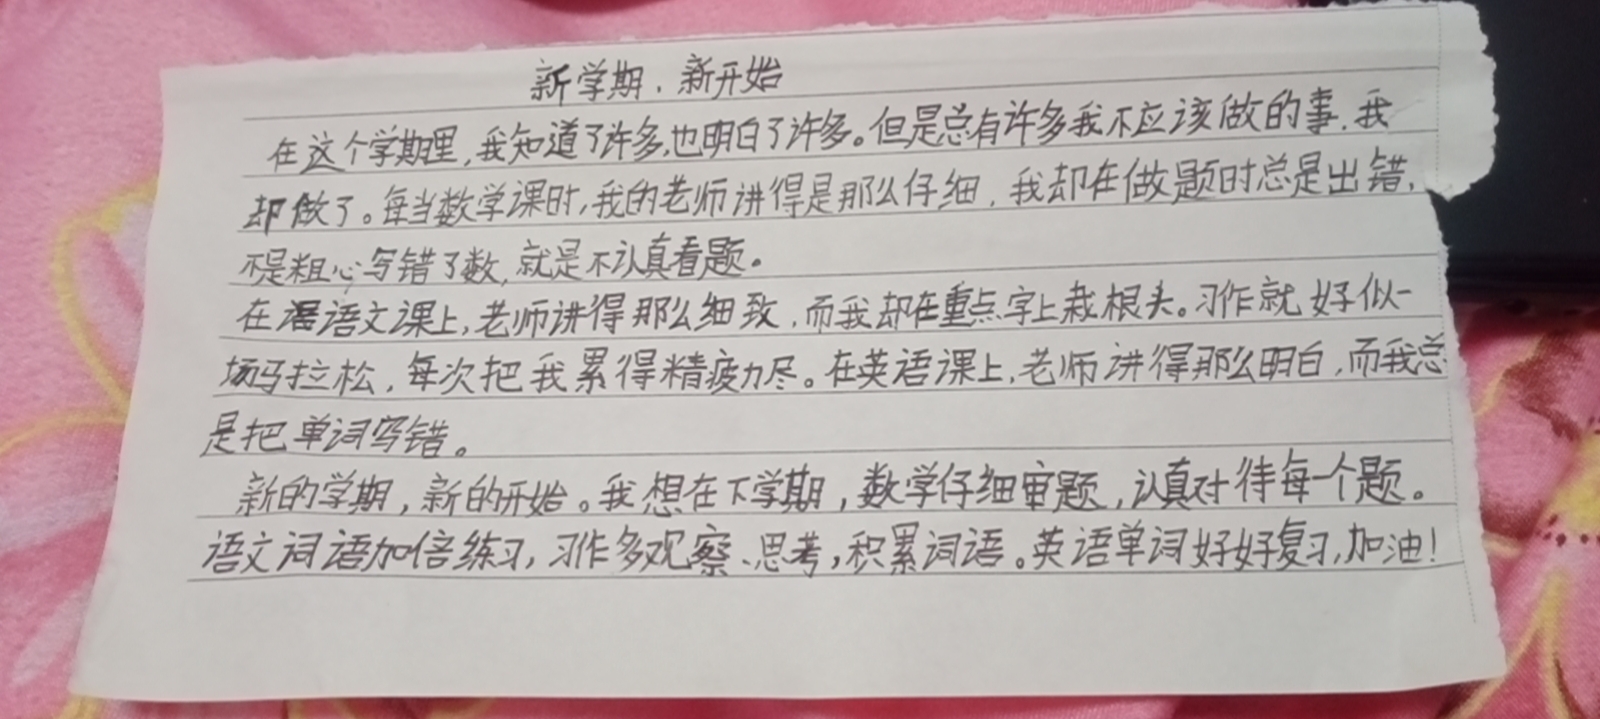 新学期，新开始
在这个学期里，我知道了许多，也明白了许多。但是总有许多我不应该做的事，我
却做了。每当数学课时，我的老师讲得是那么仔细，我却在做题时总是出错，
不是粗心写错了数，就是不认真看题。
在语文课上，老师讲得那么细致，而我却在重点字上栽根头。习作就好似一
场马拉松，每次把我累得精疲力尽。在英语课上，老师讲得那么明白，而我总
是把单词写错。
新的学期，新的开始。我想在下学期，数学仔细审题，认真对待每一个题。
语文词语加倍练习，习作多观察、思考，积累词语。英语单词好好复习，加油！